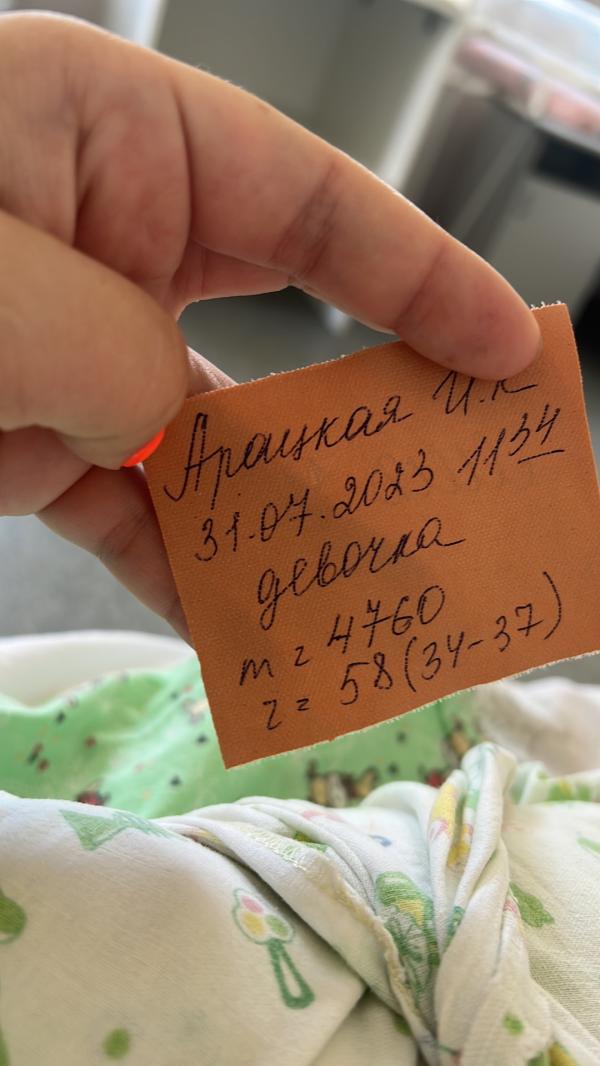 Арацкая И.К
31.07.2023 11 34
девочка
m = 4760
z = 58(34-37)